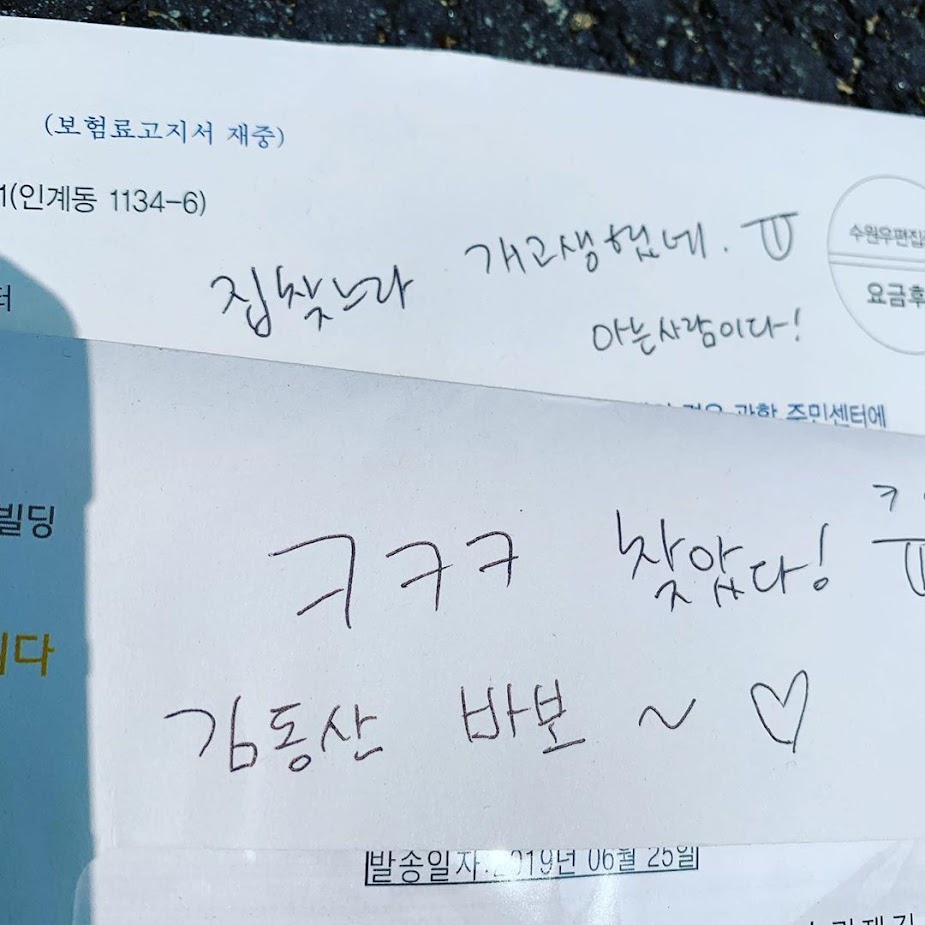 (보험료고지서 재중)
1(인계동 1134-6)
수원우편집
요금후
집찾느라 개고생했네. ㅠ
아는사람이다~!
터
경우 관할 주민센터에
빌딩
ㅋㅋㅋ 찾았다! ㅠ
니다
김동산 바보 ~ ♡
발송일자:2019년 06월 25일